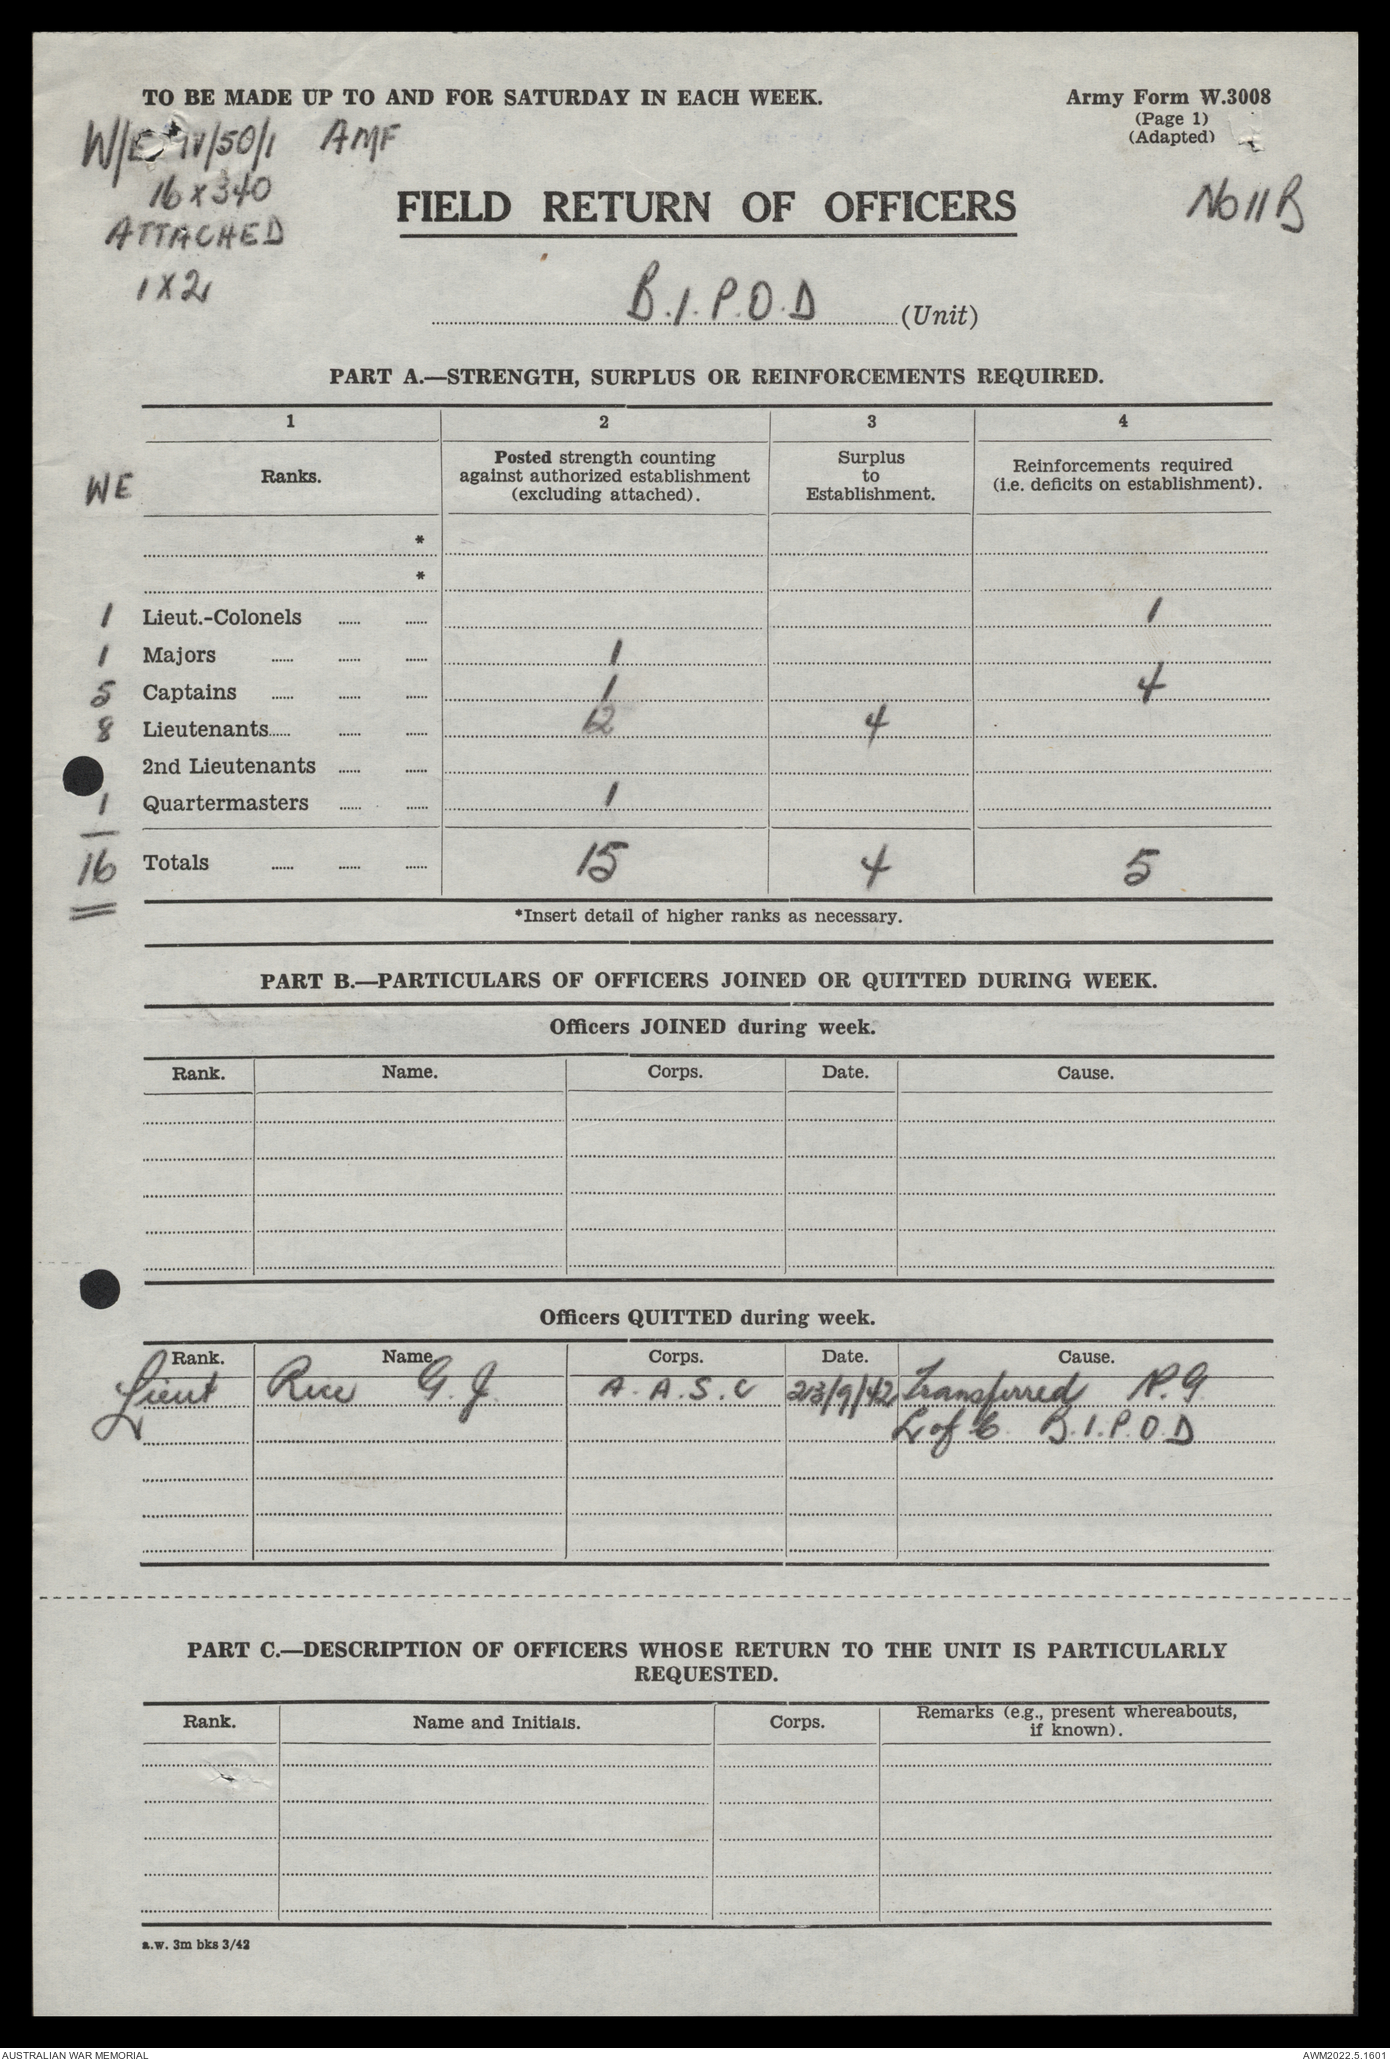 TO BE MADE UP TO AND FOR SATURDAY IN EACH WEEK.
Army Form W.3008
(Page 1)
(Adapted)
W/E IV/50/1 AMF
16 x 340
ATTACHED
1 X 2
No 11 B
FIELD RETURN OF OFFICERS
B.I.P.O.D (Unit)
PART A.—STRENGTH, SURPLUS OR REINFORCEMENTS REQUIRED.
1 2 3 4
WE Ranks. Posted strength counting against authorized establishment (excluding attached). Surplus to Establishment. Reinforcements required (i.e. deficits on establishment).
*
*
1 Lieut.-Colonels 1
1 Majors 1
5 Captains 1 4
8 Lieutenants 12 4
2nd Lieutenants
1 Quartermasters 1
16 Totals 15 4 5
*Insert detail of higher ranks as necessary.
PART B.—PARTICULARS OF OFFICERS JOINED OR QUITTED DURING WEEK.
Officers JOINED during week.
Rank. Name. Corps. Date. Cause.
Officers QUITTED during week.
Rank. Name. Corps. Date. Cause.
Lieut Rice G. J. A.A.S.C 23/9/42 Transferred N.G.
L of C. B.I.P.O.D
PART C.—DESCRIPTION OF OFFICERS WHOSE RETURN TO THE UNIT IS PARTICULARLY
REQUESTED.
Rank. Name and Initials. Corps. Remarks (e.g., present whereabouts, if known).
a.w. 3m bks 3/42
AUSTRALIAN WAR MEMORIAL
AWM2022.5.1601